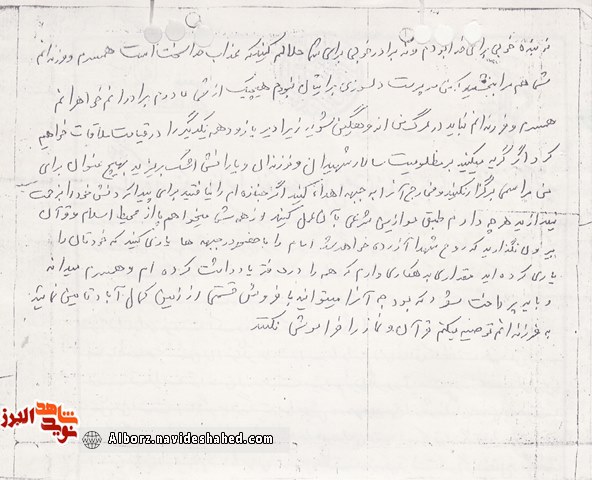 نه بنده خوبی برای خدا بودم و نه برادر خوبی برای شما حلالم کنید که عذاب خدا سخت است همسرم و فرزندانم
شما هم مرا ببخشید که من سرپرست دلسوزی برایتان نبودم هیچیک از شما مادرم برادرانم خواهرانم
همسرم و فرزندانم نباید در مرگ من اندوهگین شوید زیرا دیر یا زود همه یکدیگر را در قیامت ملاقات خواهیم
کرد اگر گریه میکنید بر مظلومیت سالار شهیدان و فرزندان و یارانش اشک بریزید بهیچ عنوان برای
من مراسمی برگزار نکنید و مخارج آنرا به جبهه اهداء کنید اگر جنازه ام را یافتید برای پیدا کردنش خود را بزحمت
نیندازید هر چه دارم طبق موازین شرعی با آن عمل کنید از همه شما میخواهم پا از محیط اسلام و قرآن
بیرون نگذارید که روح شهدا آزرده خواهد شد امام را با حضور در جبهه ها یاری کنید که خودتان را
یاری کرده اید مقداری بدهکاری دارم که همه را در دفتر یادداشت کرده ام و همسرم میداند
و باید پرداخت شود که بودجه آنرا میتوانید با فروش قسمتی از زمین کمال آباد تامین نمائید
به فرزندانم توصیه میکنم قرآن و نماز را فراموش نکنند
نوید شاهد البرز
Alborz.navideshahed.com